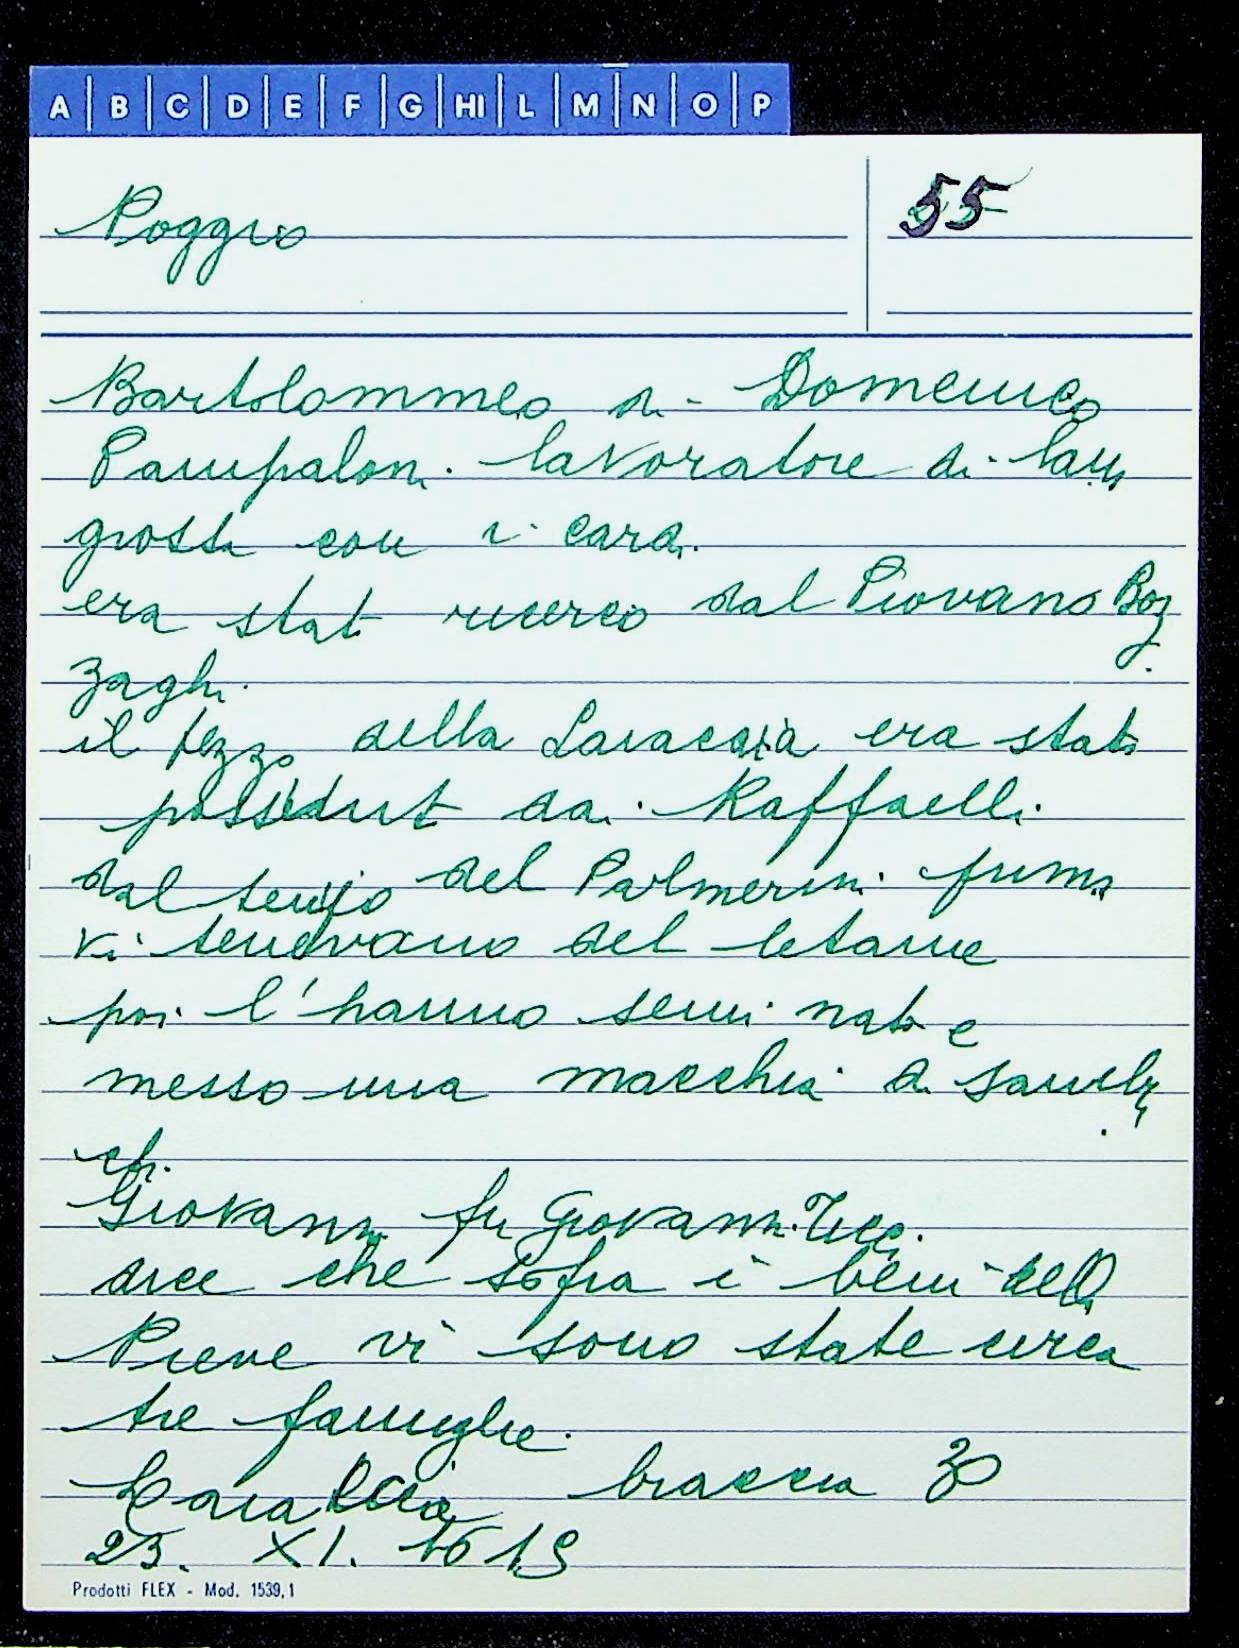 A B C D E F G HI L M N O P
Poggio
55
Bartolommeo di Domenico
Pampaloni lavoratore di
grossa con i cardi.
era stato ricerco dal Piovano Boz
zaghi.
il pezzo della era stato
posseduto dai Raffaelli
dal tempo del Palmerini prima
vi tenevano del letame
poi l'hanno seminato e
messo una macchia di
Giovanni fu Giovanni
dice che sopra i beni della
Pieve vi sono state circa
tre famiglie.
braccia 30
23. XI. 1619
Prodotti FLEX - Mod. 1539,1